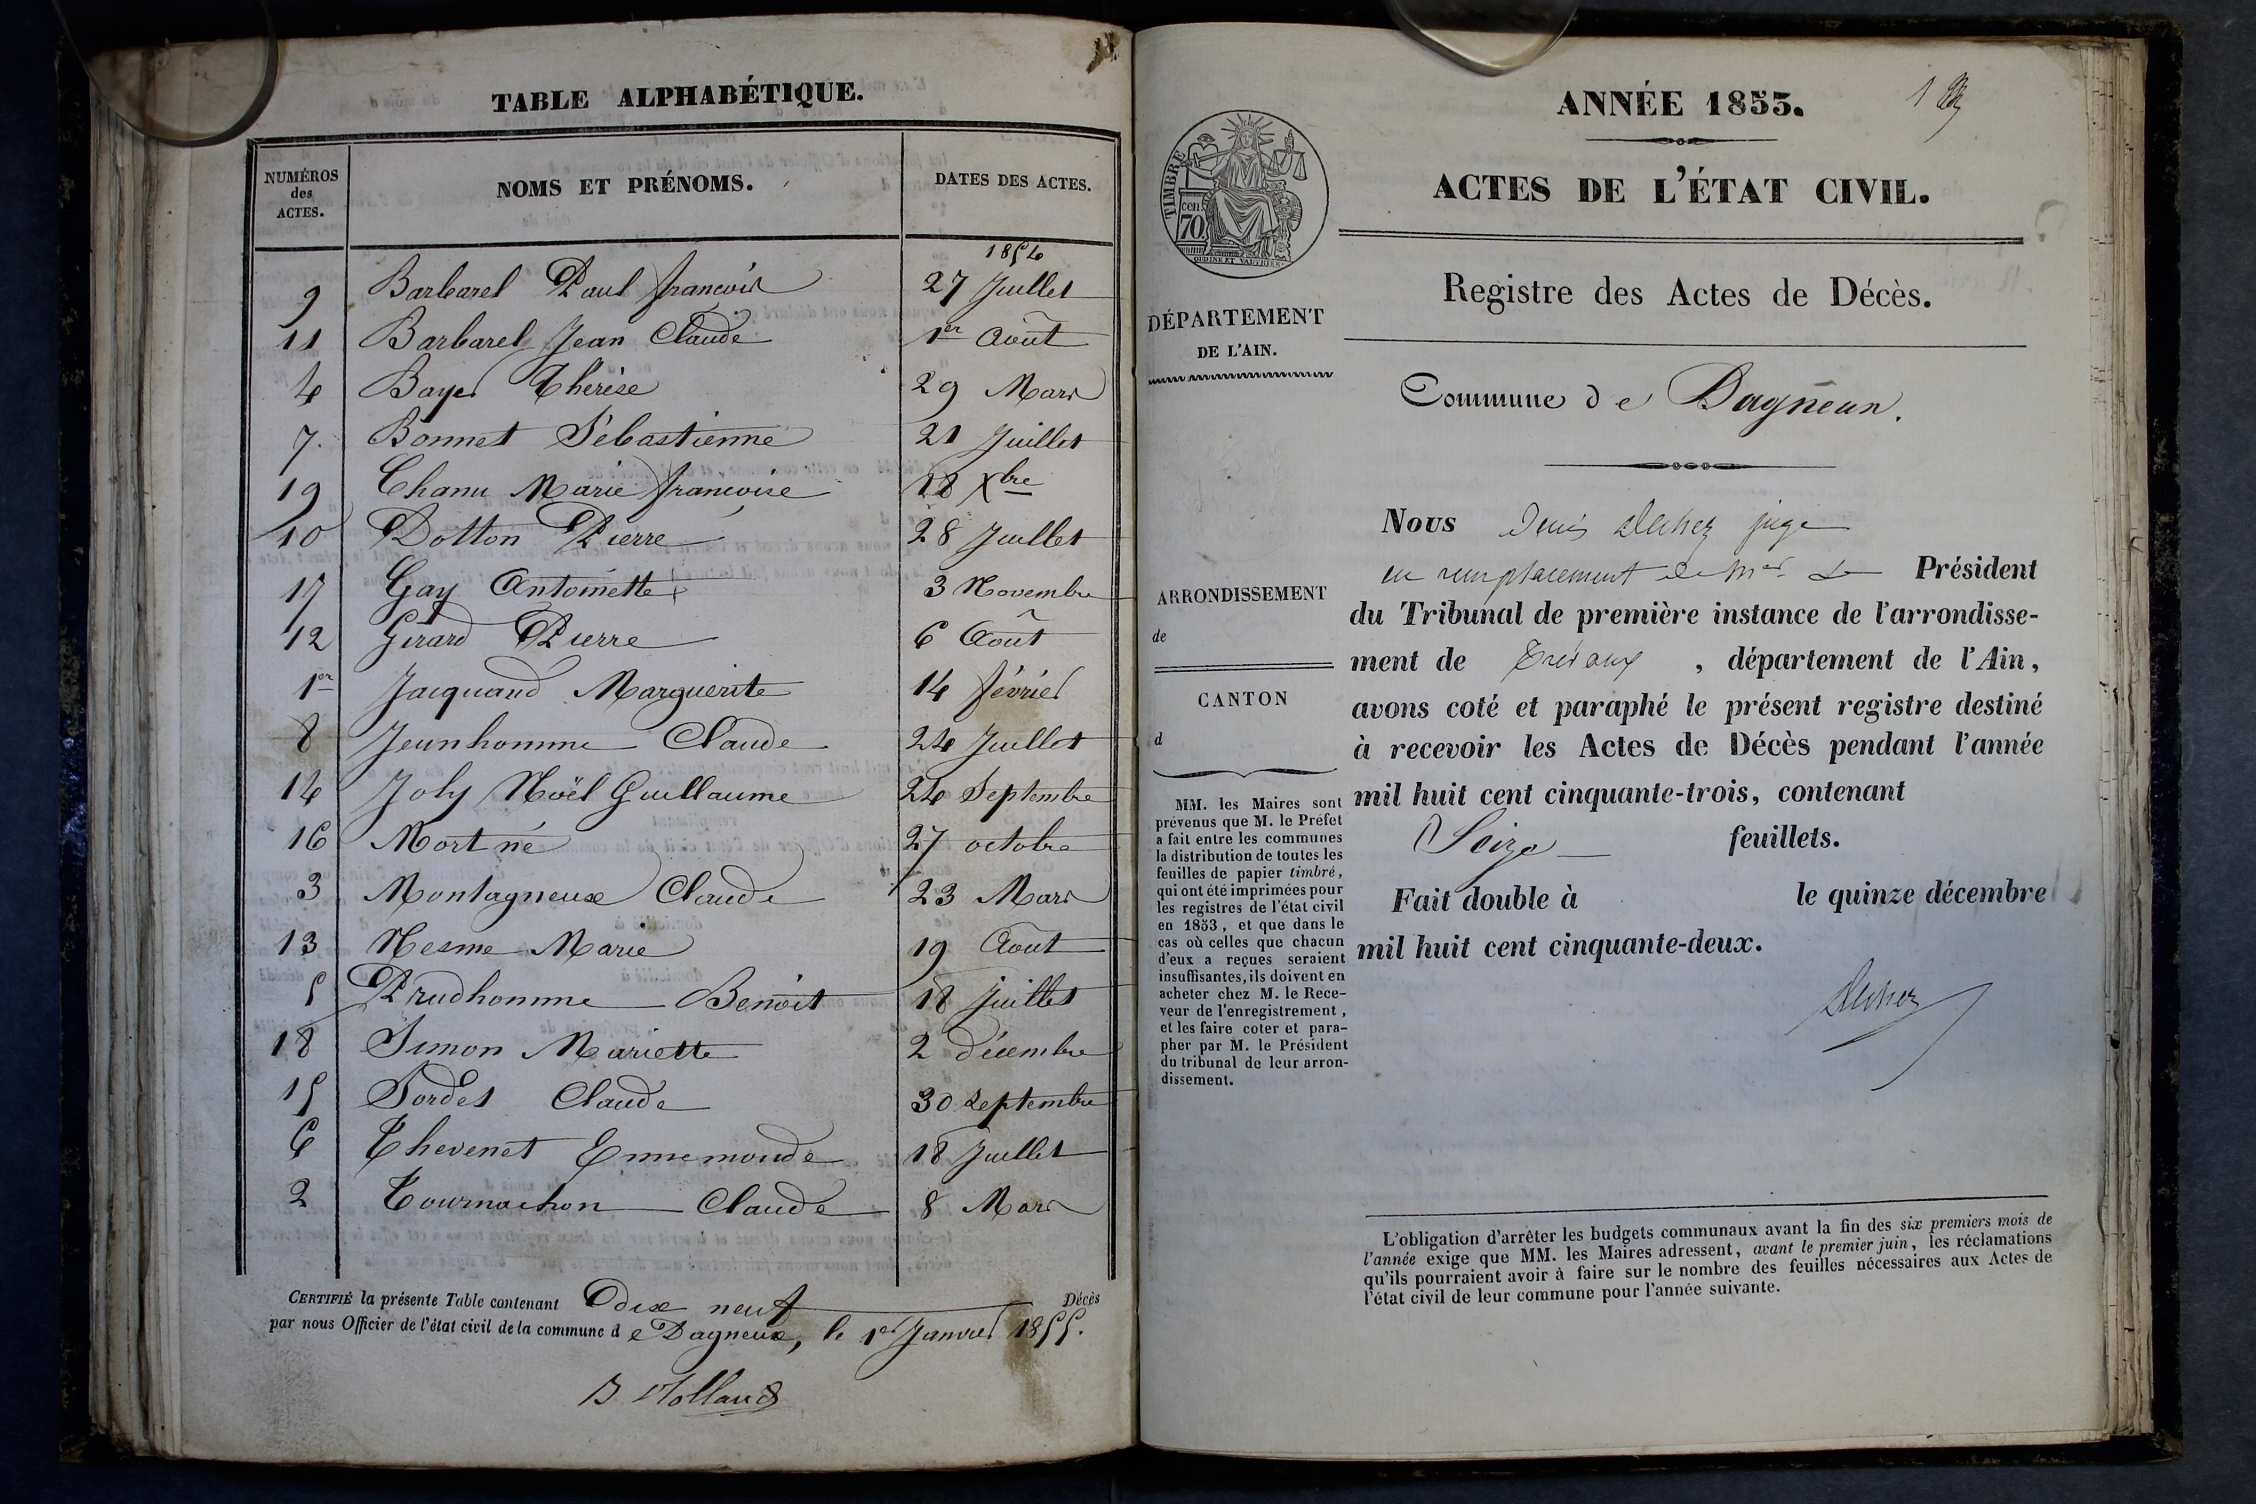 TABLE ALPHABÉTIQUE.
NUMÉROS des ACTES. NOMS ET PRÉNOMS. DATES DES ACTES.
1854
9 Barbarel Paul françois 27 Juillet
11 Barbarel Jean Claude 1er Août
4 Bayer Thérèse 29 Mars
7. Bonnet Sébastienne 21 Juillet
19 Chanu Marie françoise 18 Xbre
10 Dotton Pierre 28 Juillet
17 Gay Antoinette 3 Novembre
12 Girard Pierre 6 Août
1er Jacquand Marguerite 14 février
8 Jeunhomme Claude 24 Juillet
14 Joly Noël Guillaume 24 Septembre
16 Mort né 27 octobre
3 Montagneux Claude 23 Mars
13 Nesme Marie 19 Août
5 Prudhomme Benoît 18 Juillet
18 Simon Mariette 2 décembre
15 Sordet Claude 30 septembre
6 Thevenet Ennemonde 18 Juillet
2 Tournachon Claude 8 Mars
CERTIFIÉ la présente Table contenant Dix neuf Décès
par nous Officier de l'état civil de la commune d e Dagneux, le 1er Janvier 1855.
ANNÉE 1853.
1
ACTES DE L'ÉTAT CIVIL.
TIMBRE
cen.
70
OUDINE ET VAUTHIER
Registre des Actes de Décès.
DÉPARTEMENT
DE L'AIN.
Commune de Dagneux.
ARRONDISSEMENT
de
CANTON
d
MM. les Maires sont
prévenus que M. le Préfet
a fait entre les communes
la distribution de toutes les
feuilles de papier timbré,
qui ont été imprimées pour
les registres de l'état civil
en 1853, et que dans le
cas où celles que chacun
d'eux a reçues seraient
insuffisantes, ils doivent en
acheter chez M. le Rece-
veur de l'enregistrement,
et les faire coter et para-
pher par M. le Président
du tribunal de leur arron-
dissement.
Nous Denis juge
en remplacement de Mr Le Président
du Tribunal de première instance de l'arrondisse-
ment de Trévoux , département de l'Ain,
avons coté et paraphé le présent registre destiné
à recevoir les Actes de Décès pendant l'année
mil huit cent cinquante-trois, contenant
Seize feuillets.
Fait double à le quinze décembre
mil huit cent cinquante-deux.
L'obligation d'arrêter les budgets communaux avant la fin des six premiers mois de
l'année exige que MM. les Maires adressent, avant le premier juin, les réclamations
qu'ils pourraient avoir à faire sur le nombre des feuilles nécessaires aux Actes de
l'état civil de leur commune pour l'année suivante.